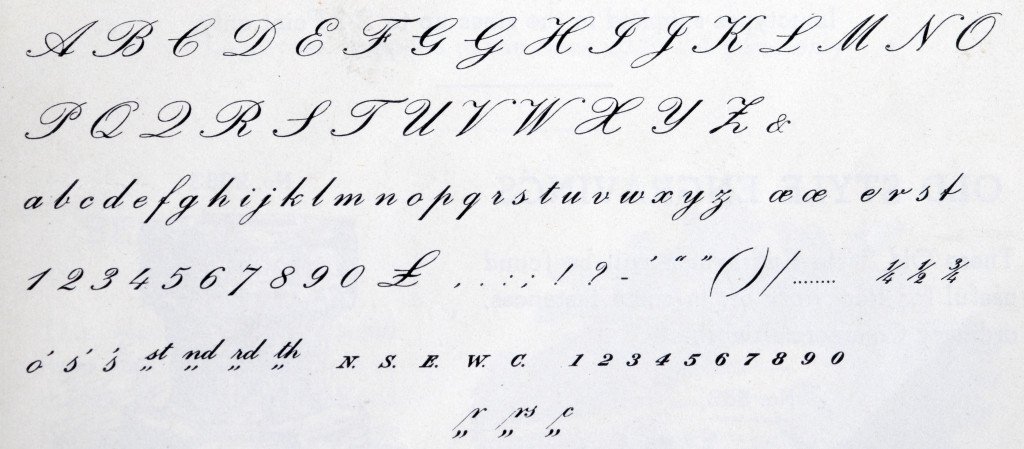 A B C D E F G G H I J K L M N O
P Q Q R S T U V W X Y Z &
a b c d e f g h i j k l m n o p q r s t u v w x y z æ œ e r s t
1 2 3 4 5 6 7 8 9 0 £ , . : ; ! ? - ' “ ” ( ) / ........ ¼ ½ ¾
ó s' ś „st „nd „rd „th N. S. E. W. C. 1 2 3 4 5 6 7 8 9 0
„r „rs „c